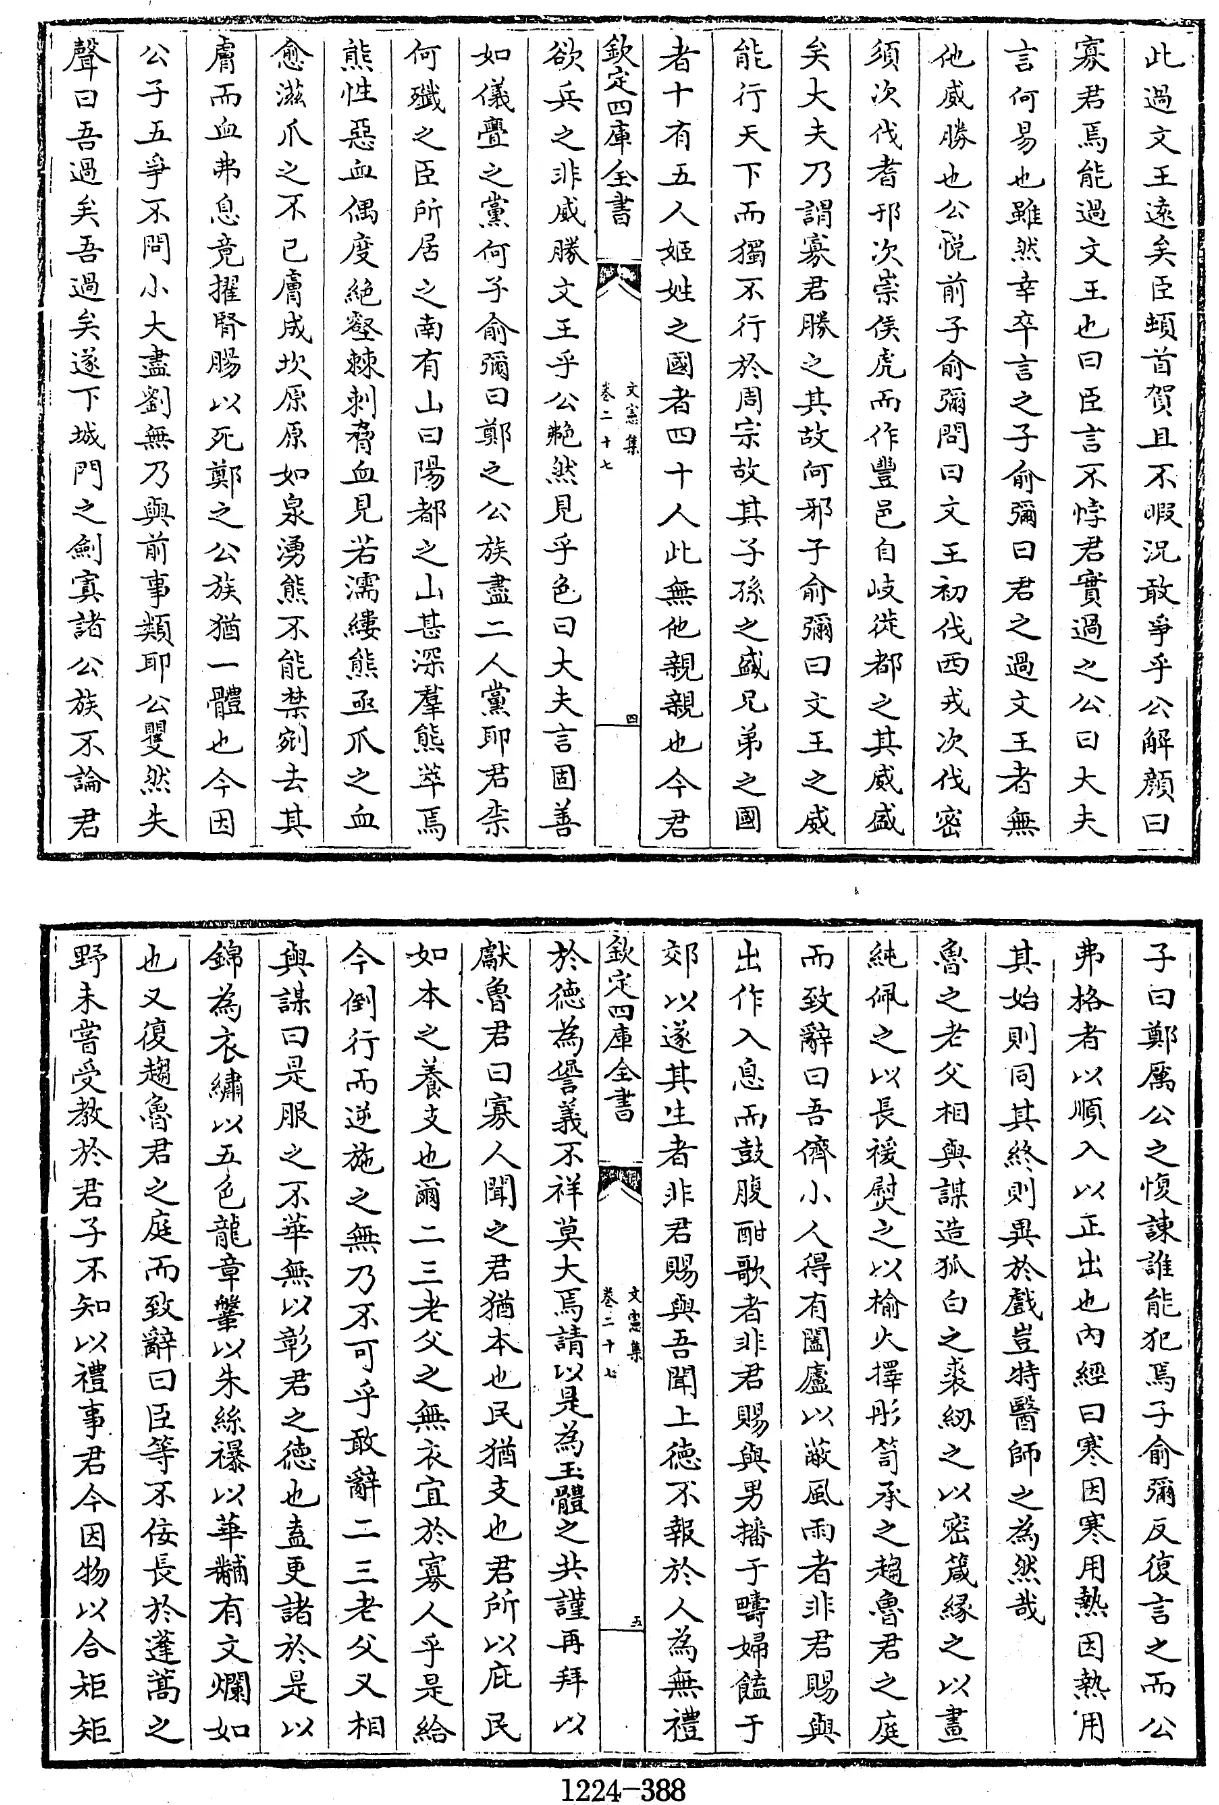 此過文王遠矣臣頓首賀且不暇況敢爭乎公解顏曰
寡君焉能過文王也曰臣言不悖君實過之公曰大夫
言何易也雖然幸卒言之子俞彌曰君之過文王者無
他威勝也公悅前子俞彌問曰文王初伐西戎次伐密
須次伐耆邘次崇侯虎而作豐邑自岐徙都之其威盛
矣大夫乃謂寡君勝之其故何邪子俞彌曰文王之威
能行天下而獨不行於周宗故其子孫之盛兄弟之國
者十有五人姬姓之國者四十人此無他親親也今君
欽定四庫全書
文憲集
卷二十七
四
欲兵之非威勝文王乎公艴然見乎色曰大夫言固善
如儀亹之黨何子俞彌曰鄭之公族盡二人黨耶君柰
何殲之臣所居之南有山曰陽都之山甚深羣熊萃焉
熊性惡血偶度絶壑棘刺脊血見若濡縷熊亟爪之血
愈滋爪之不已膚成坎原原如泉湧熊不能禁剜去其
膚而血弗息竟擢腎腸以死鄭之公族猶一體也今因
公子五爭不問小大盡劉無乃與前事類耶公瞿然失
聲曰吾過矣吾過矣遂下城門之劍寘諸公族不論君
子曰鄭厲公之愎諫誰能犯焉子俞彌反復言之而公
弗格者以順入以正出也內經曰寒因寒用熱因熱用
其始則同其終則異於戲豈特醫師之為然哉
魯之老父相與謀造狐白之裘紉之以密箴緣之以畫
純佩之以長褑熨之以榆火擇彤笥承之趨魯君之庭
而致辭曰吾儕小人得有闔廬以蔽風雨者非君賜與
出作入息而鼓腹酣歌者非君賜與男播于疇婦饁于
郊以遂其生者非君賜與吾聞上德不報於人為無禮
欽定四庫全書
文憲集
卷二十七
五
於德為諐義不祥莫大焉請以是為玉體之共謹再拜以
獻魯君曰寡人聞之君猶本也民猶支也君所以庇民
如本之養支也爾二三老父之無衣宜於寡人乎是給
今倒行而逆施之無乃不可乎敢辭二三老父又相
與謀曰是服之不華無以彰君之德也盍更諸於是以
錦為衣繡以五色龍章鞶以朱絲襮以華黼有文爛如
也又復趨魯君之庭而致辭曰臣等不佞長於蓬蒿之
野未嘗受教於君子不知以禮事君今因物以合矩矩
1224-388